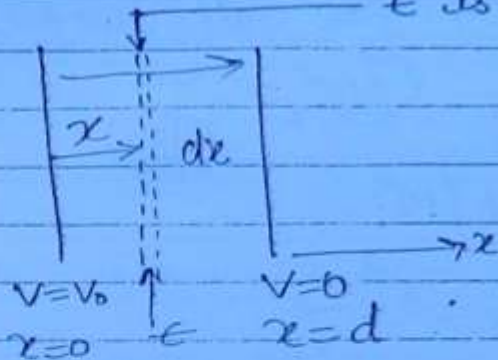 x
dx
x
V=V₀
V=0
x=0
ϵ
x=d